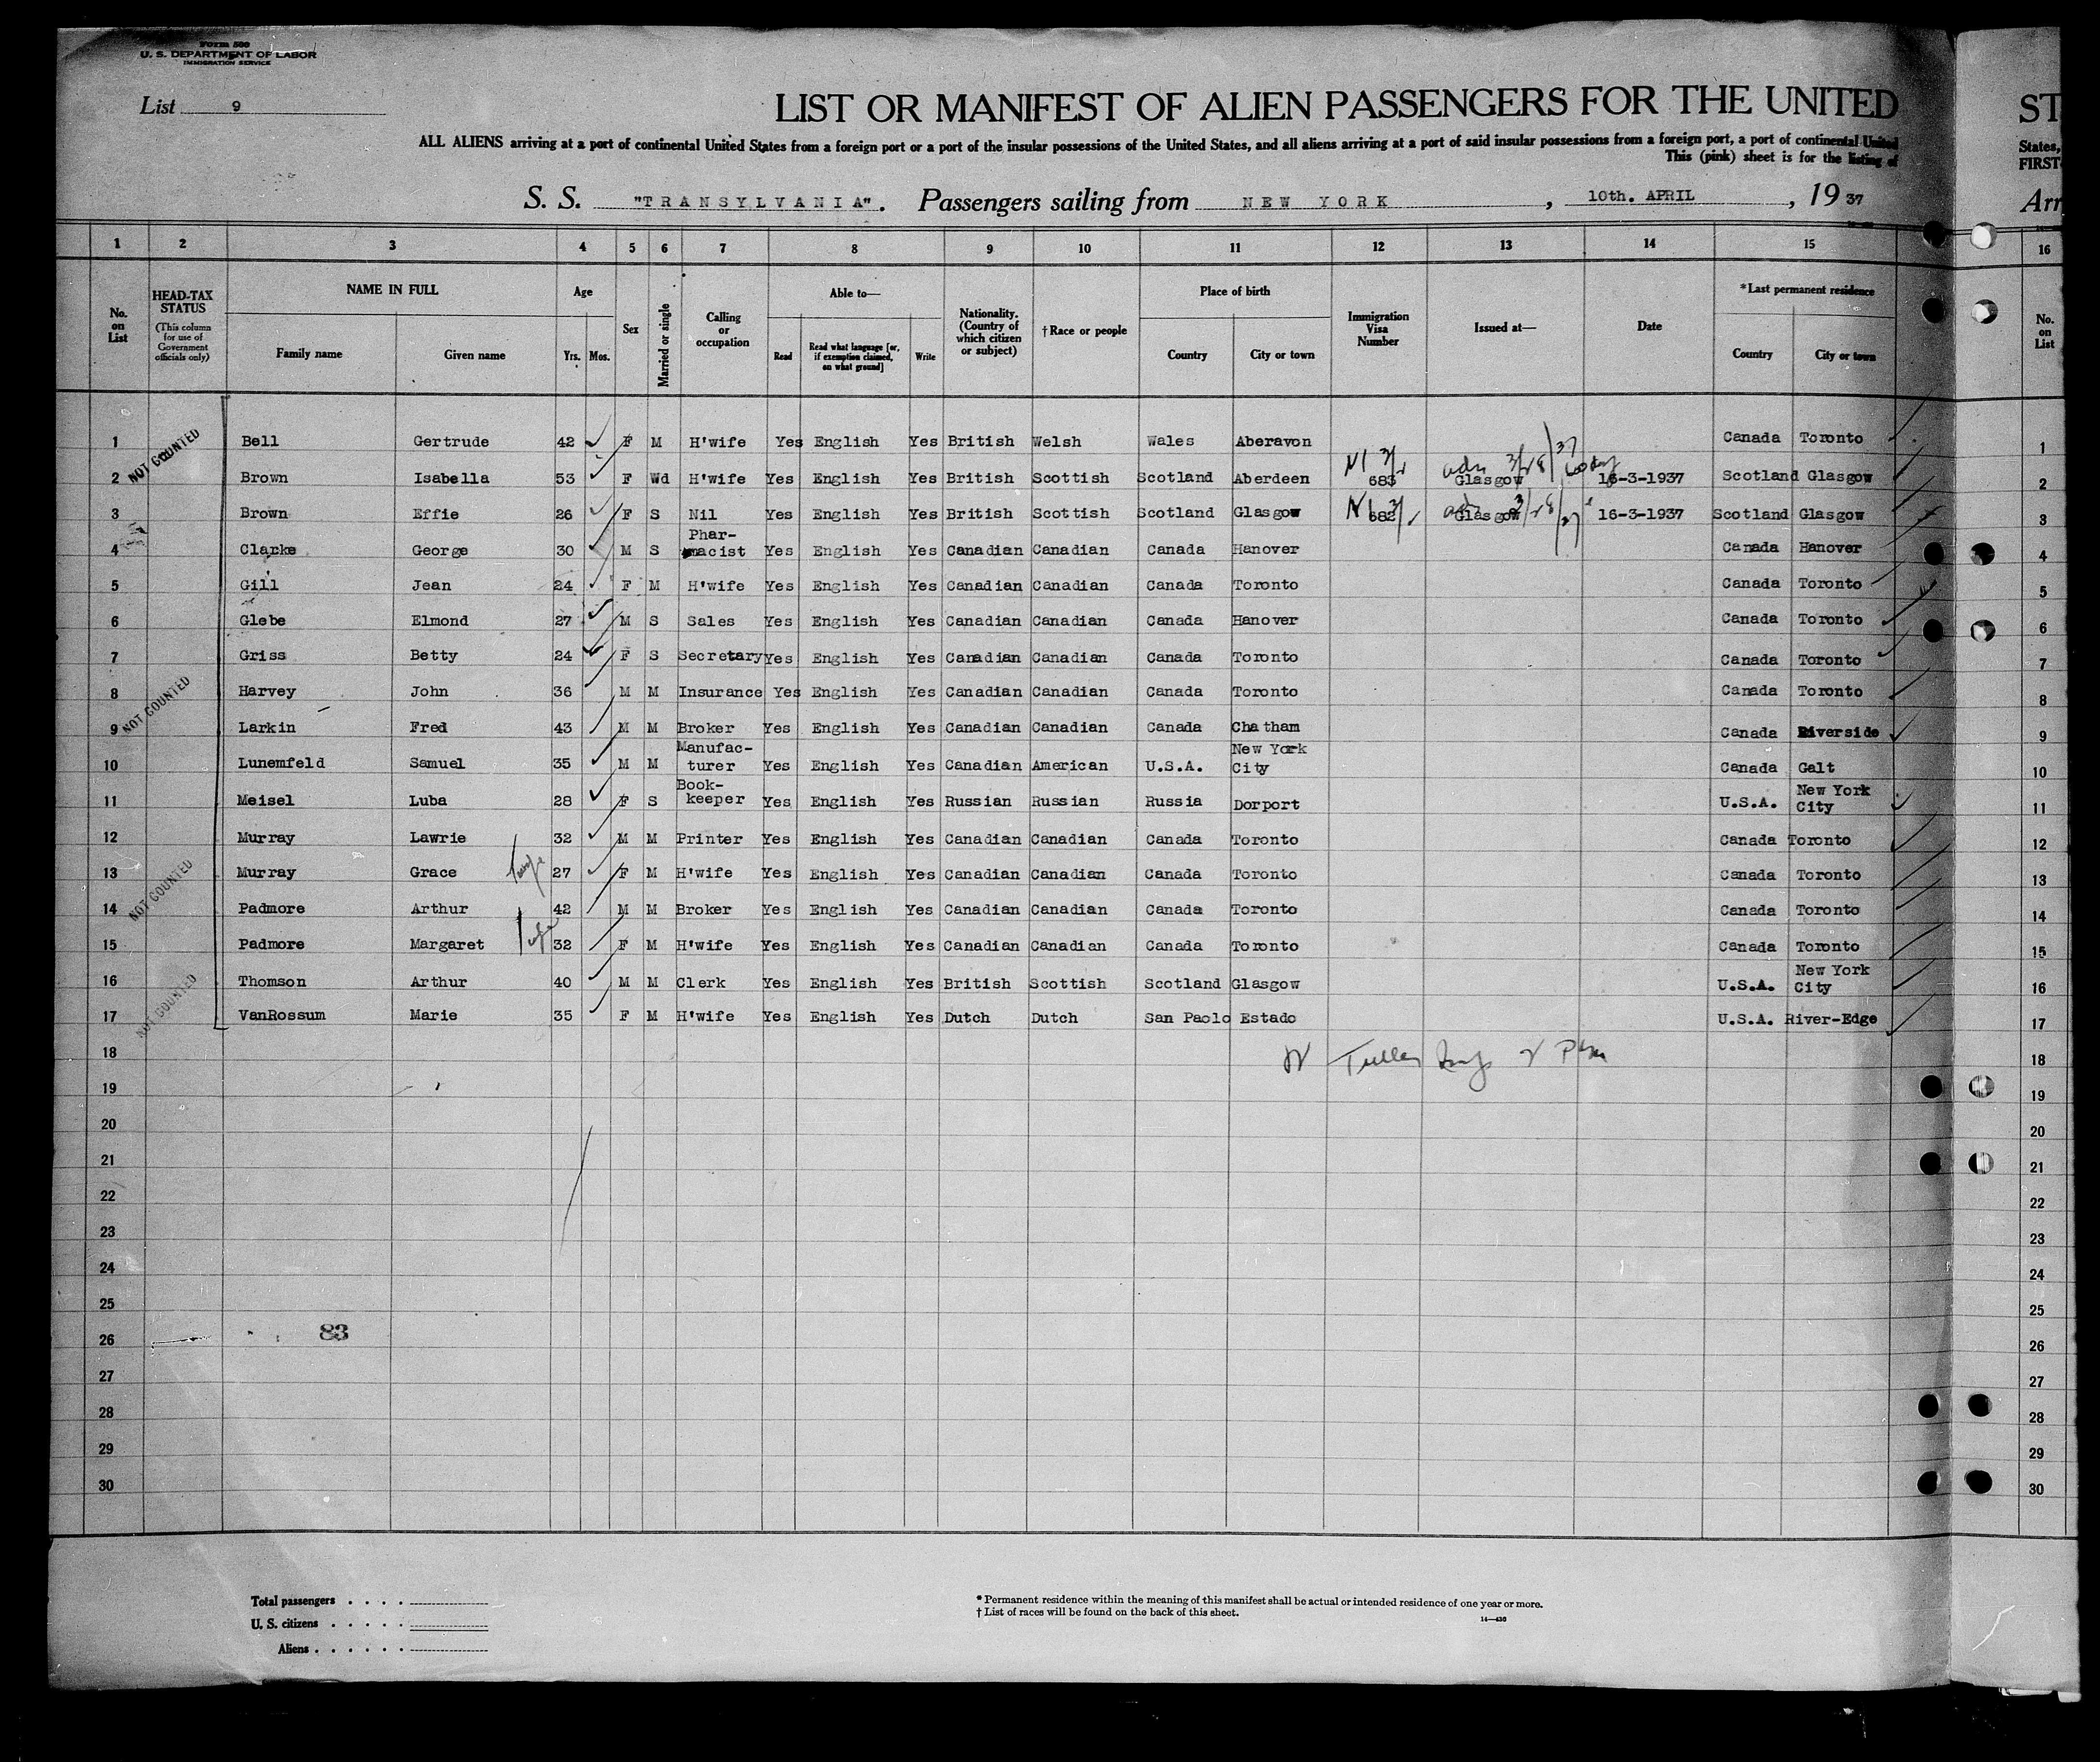 Form 500
U. S. DEPARTMENT OF LABOR
IMMIGRATION SERVICE
List 9
LIST OR MANIFEST OF ALIEN PASSENGERS FOR THE UNITED
ST
ALL ALIENS arriving at a port of continental United States from a foreign port or a port of the insular possessions of the United States, and all aliens arriving at a port of said insular possessions from a foreign port, a port of continental United
States,
This (pink) sheet is for the listing of
FIRST
S. S. "TRANSYLVANIA". Passengers sailing from NEW YORK, 10th. APRIL, 19 37
Arr
1 2 3 4 5 6 7 8 9 10 11 12 13 14 15 16
No. on List
HEAD-TAX STATUS
(This column for use of Government officials only)
NAME IN FULL
Family name Given name
Age
Yrs. Mos.
Sex
Married or single
Calling or occupation
Able to—
Read
Read what language [or, if exemption claimed, on what ground]
Write
Nationality. (Country of which citizen or subject)
† Race or people
Place of birth
Country City or town
Immigration Visa Number
Issued at—
Date
* Last permanent residence
Country City or town
No. on List
1 Bell Gertrude 42 F M H'wife Yes English Yes British Welsh Wales Aberavon Canada Toronto 1
2 Brown Isabella 53 F Wd H'wife Yes English Yes British Scottish Scotland Aberdeen 683 Glasgow 16-3-1937 Scotland Glasgow 2
3 Brown Effie 26 F S Nil Yes English Yes British Scottish Scotland Glasgow 682 Glasgow 16-3-1937 Scotland Glasgow 3
4 Clarke George 30 M S Phar-macist Yes English Yes Canadian Canadian Canada Hanover Canada Hanover 4
5 Gill Jean 24 F M H'wife Yes English Yes Canadian Canadian Canada Toronto Canada Toronto 5
6 Glebe Elmond 27 M S Sales Yes English Yes Canadian Canadian Canada Hanover Canada Toronto 6
7 Griss Betty 24 F S Secretary Yes English Yes Canadian Canadian Canada Toronto Canada Toronto 7
8 Harvey John 36 M M Insurance Yes English Yes Canadian Canadian Canada Toronto Canada Toronto 8
9 Larkin Fred 43 M M Broker Yes English Yes Canadian Canadian Canada Chatham Canada Riverside 9
10 Lunemfeld Samuel 35 M M Manufac-turer Yes English Yes Canadian American U.S.A. New York City Canada Galt 10
11 Meisel Luba 28 F S Book-keeper Yes English Yes Russian Russian Russia Dorport U.S.A. New York City 11
12 Murray Lawrie 32 M M Printer Yes English Yes Canadian Canadian Canada Toronto Canada Toronto 12
13 Murray Grace wife 27 F M H'wife Yes English Yes Canadian Canadian Canada Toronto Canada Toronto 13
14 Padmore Arthur 42 M M Broker Yes English Yes Canadian Canadian Canada Toronto Canada Toronto 14
15 Padmore Margaret wife 32 F M H'wife Yes English Yes Canadian Canadian Canada Toronto Canada Toronto 15
16 Thomson Arthur 40 M M Clerk Yes English Yes British Scottish Scotland Glasgow U.S.A. New York City 16
17 VanRossum Marie 35 F M H'wife Yes English Yes Dutch Dutch San Paolo Estado U.S.A. River-Edge 17
NOT COUNTED
NOT COUNTED
NOT COUNTED
NOT COUNTED
18 18
19 19
20 20
21 21
22 22
23 23
24 24
25 25
26 83 26
27 27
28 28
29 29
30 30
Total passengers
U. S. citizens
Aliens
* Permanent residence within the meaning of this manifest shall be actual or intended residence of one year or more.
† List of races will be found on the back of this sheet.
14—430